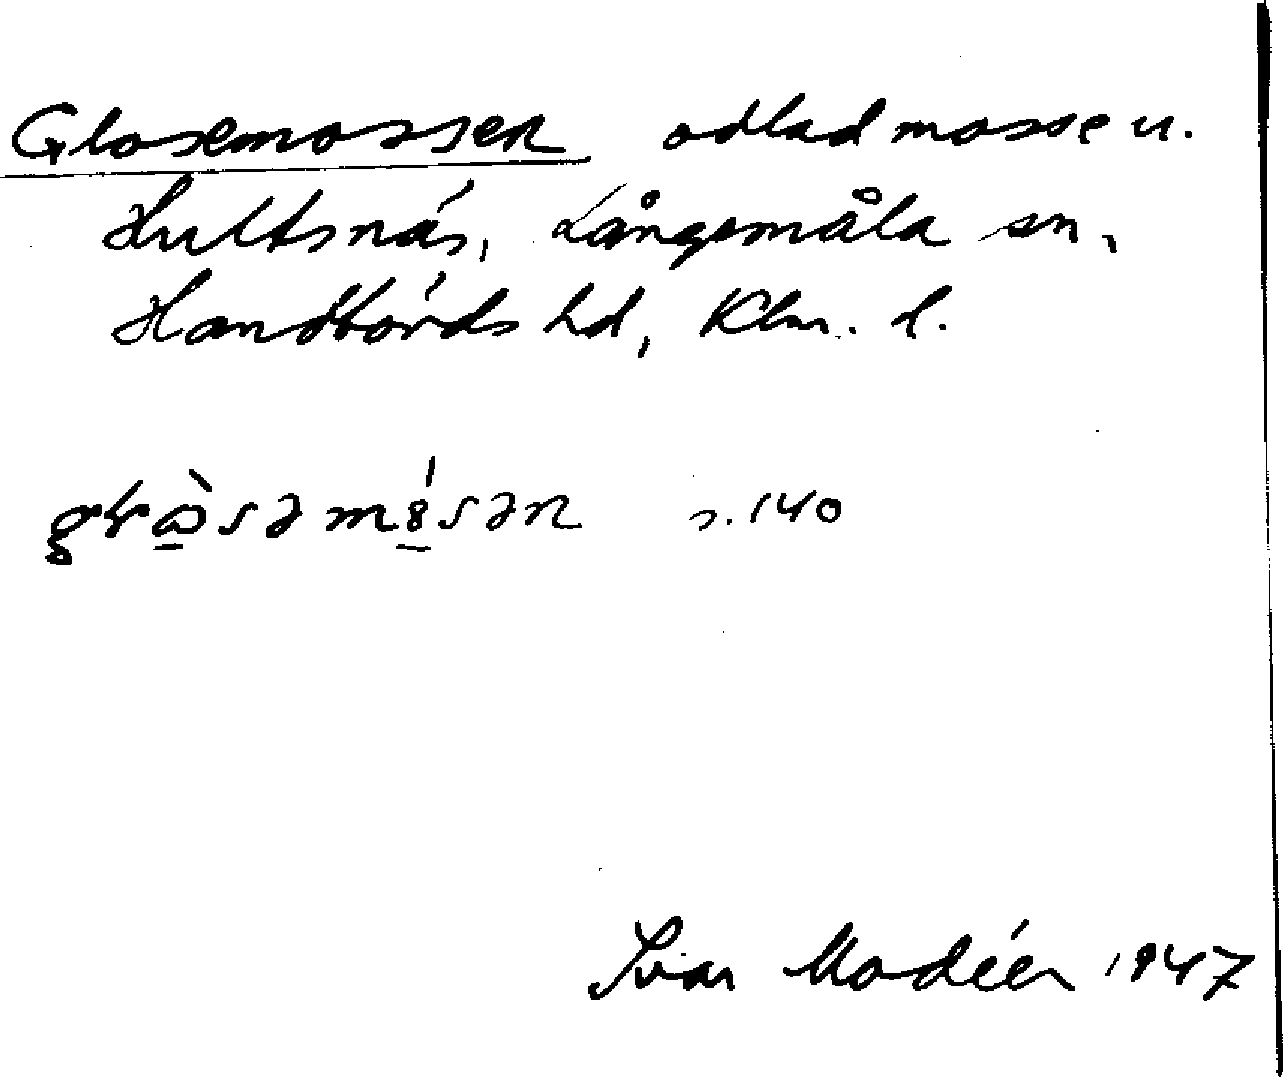 Glosemossen odlad mosse u.
Hultsnäs, Långemåla sn,
Handbörds hd, Klm. l.
s. 140
Ivar Modéer 1947